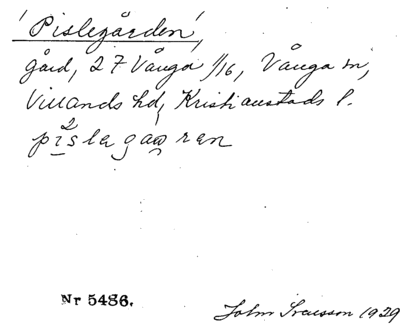 'Pislegården'
gård, 27 Vånga 1/16, Vånga sn,
Villands hd, Kristianstads l.
pi²slagaɷren
Nr 5486.
John Svensson 1929